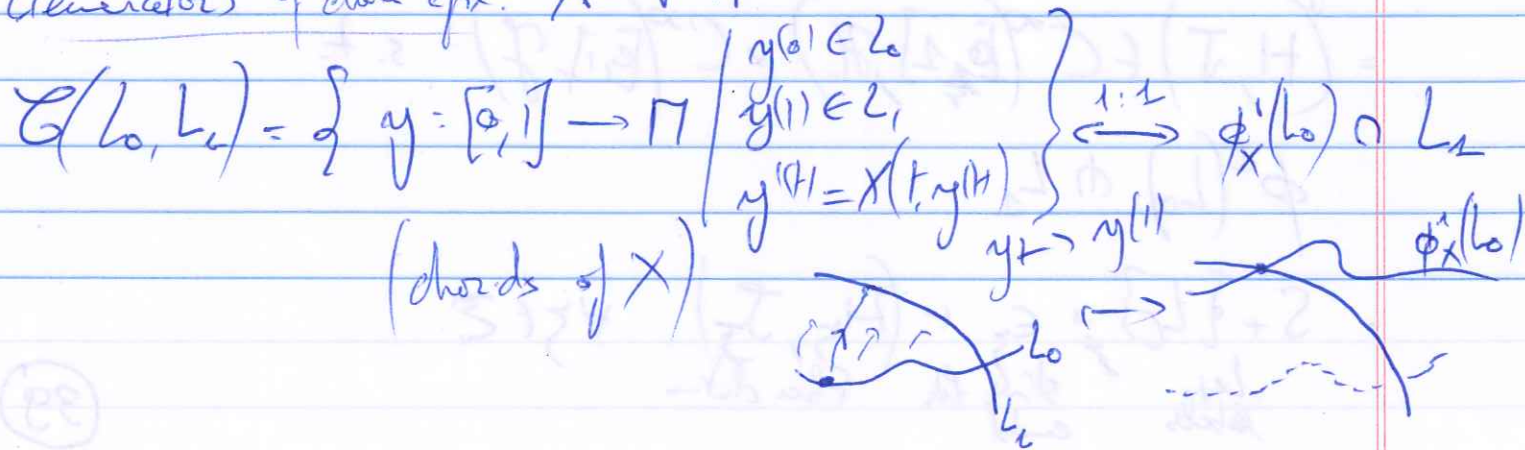 Generators of chain cpx.
𝒞(L₀, L₁) = { y : [0,1] → M | y(0) ∈ L₀ y(1) ∈ L₁ y'(t) = X(t, y(t)) } ⟷^{1:1} φ_X^1(L₀) ∩ L₁
(chords of X) y ↦ y(1)
φ_X^1(L₀)
↦
L₀
L₁
39